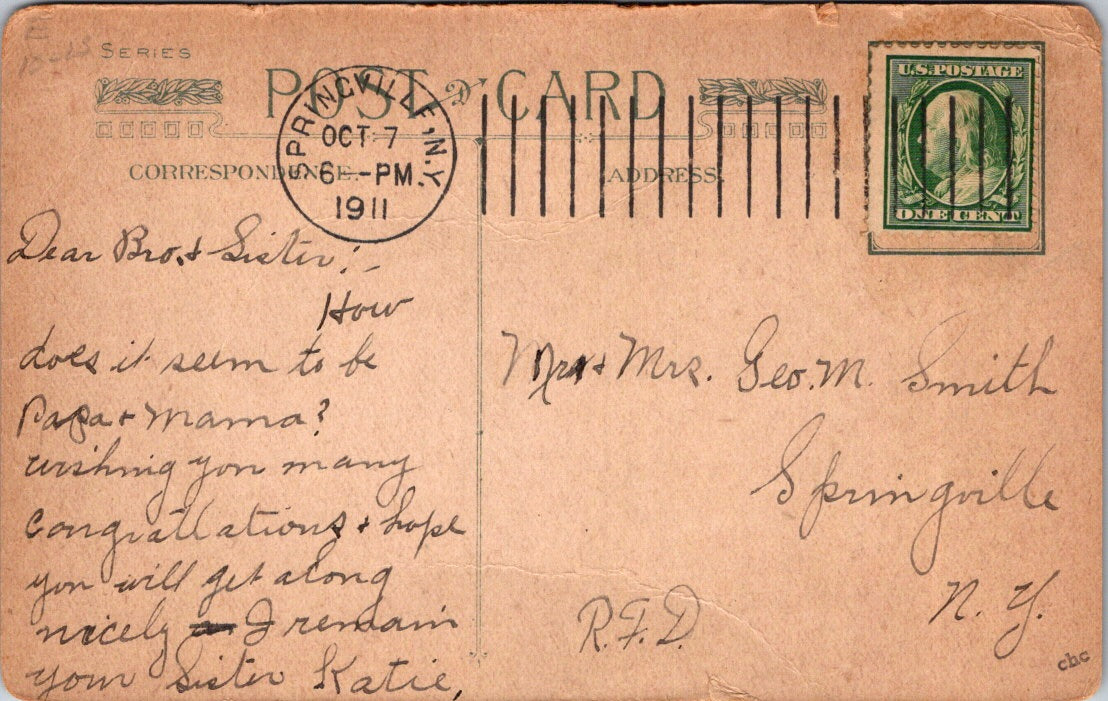 SERIES
POST CARD
SPRINGVILLE, N.Y.
OCT 7
6 -PM.
1911
U.S. POSTAGE
ONE CENT
CORRESPONDENCE
ADDRESS
Dear Bro. & Sister:-
How
does it seem to be
Papa & Mama?
wishing you many
congratllations & hope
you will get along
nicely I remain
your Sister Katie,
Mr. & Mrs. Geo. M. Smith
Springville
N. Y.
R.F.D.
cbc